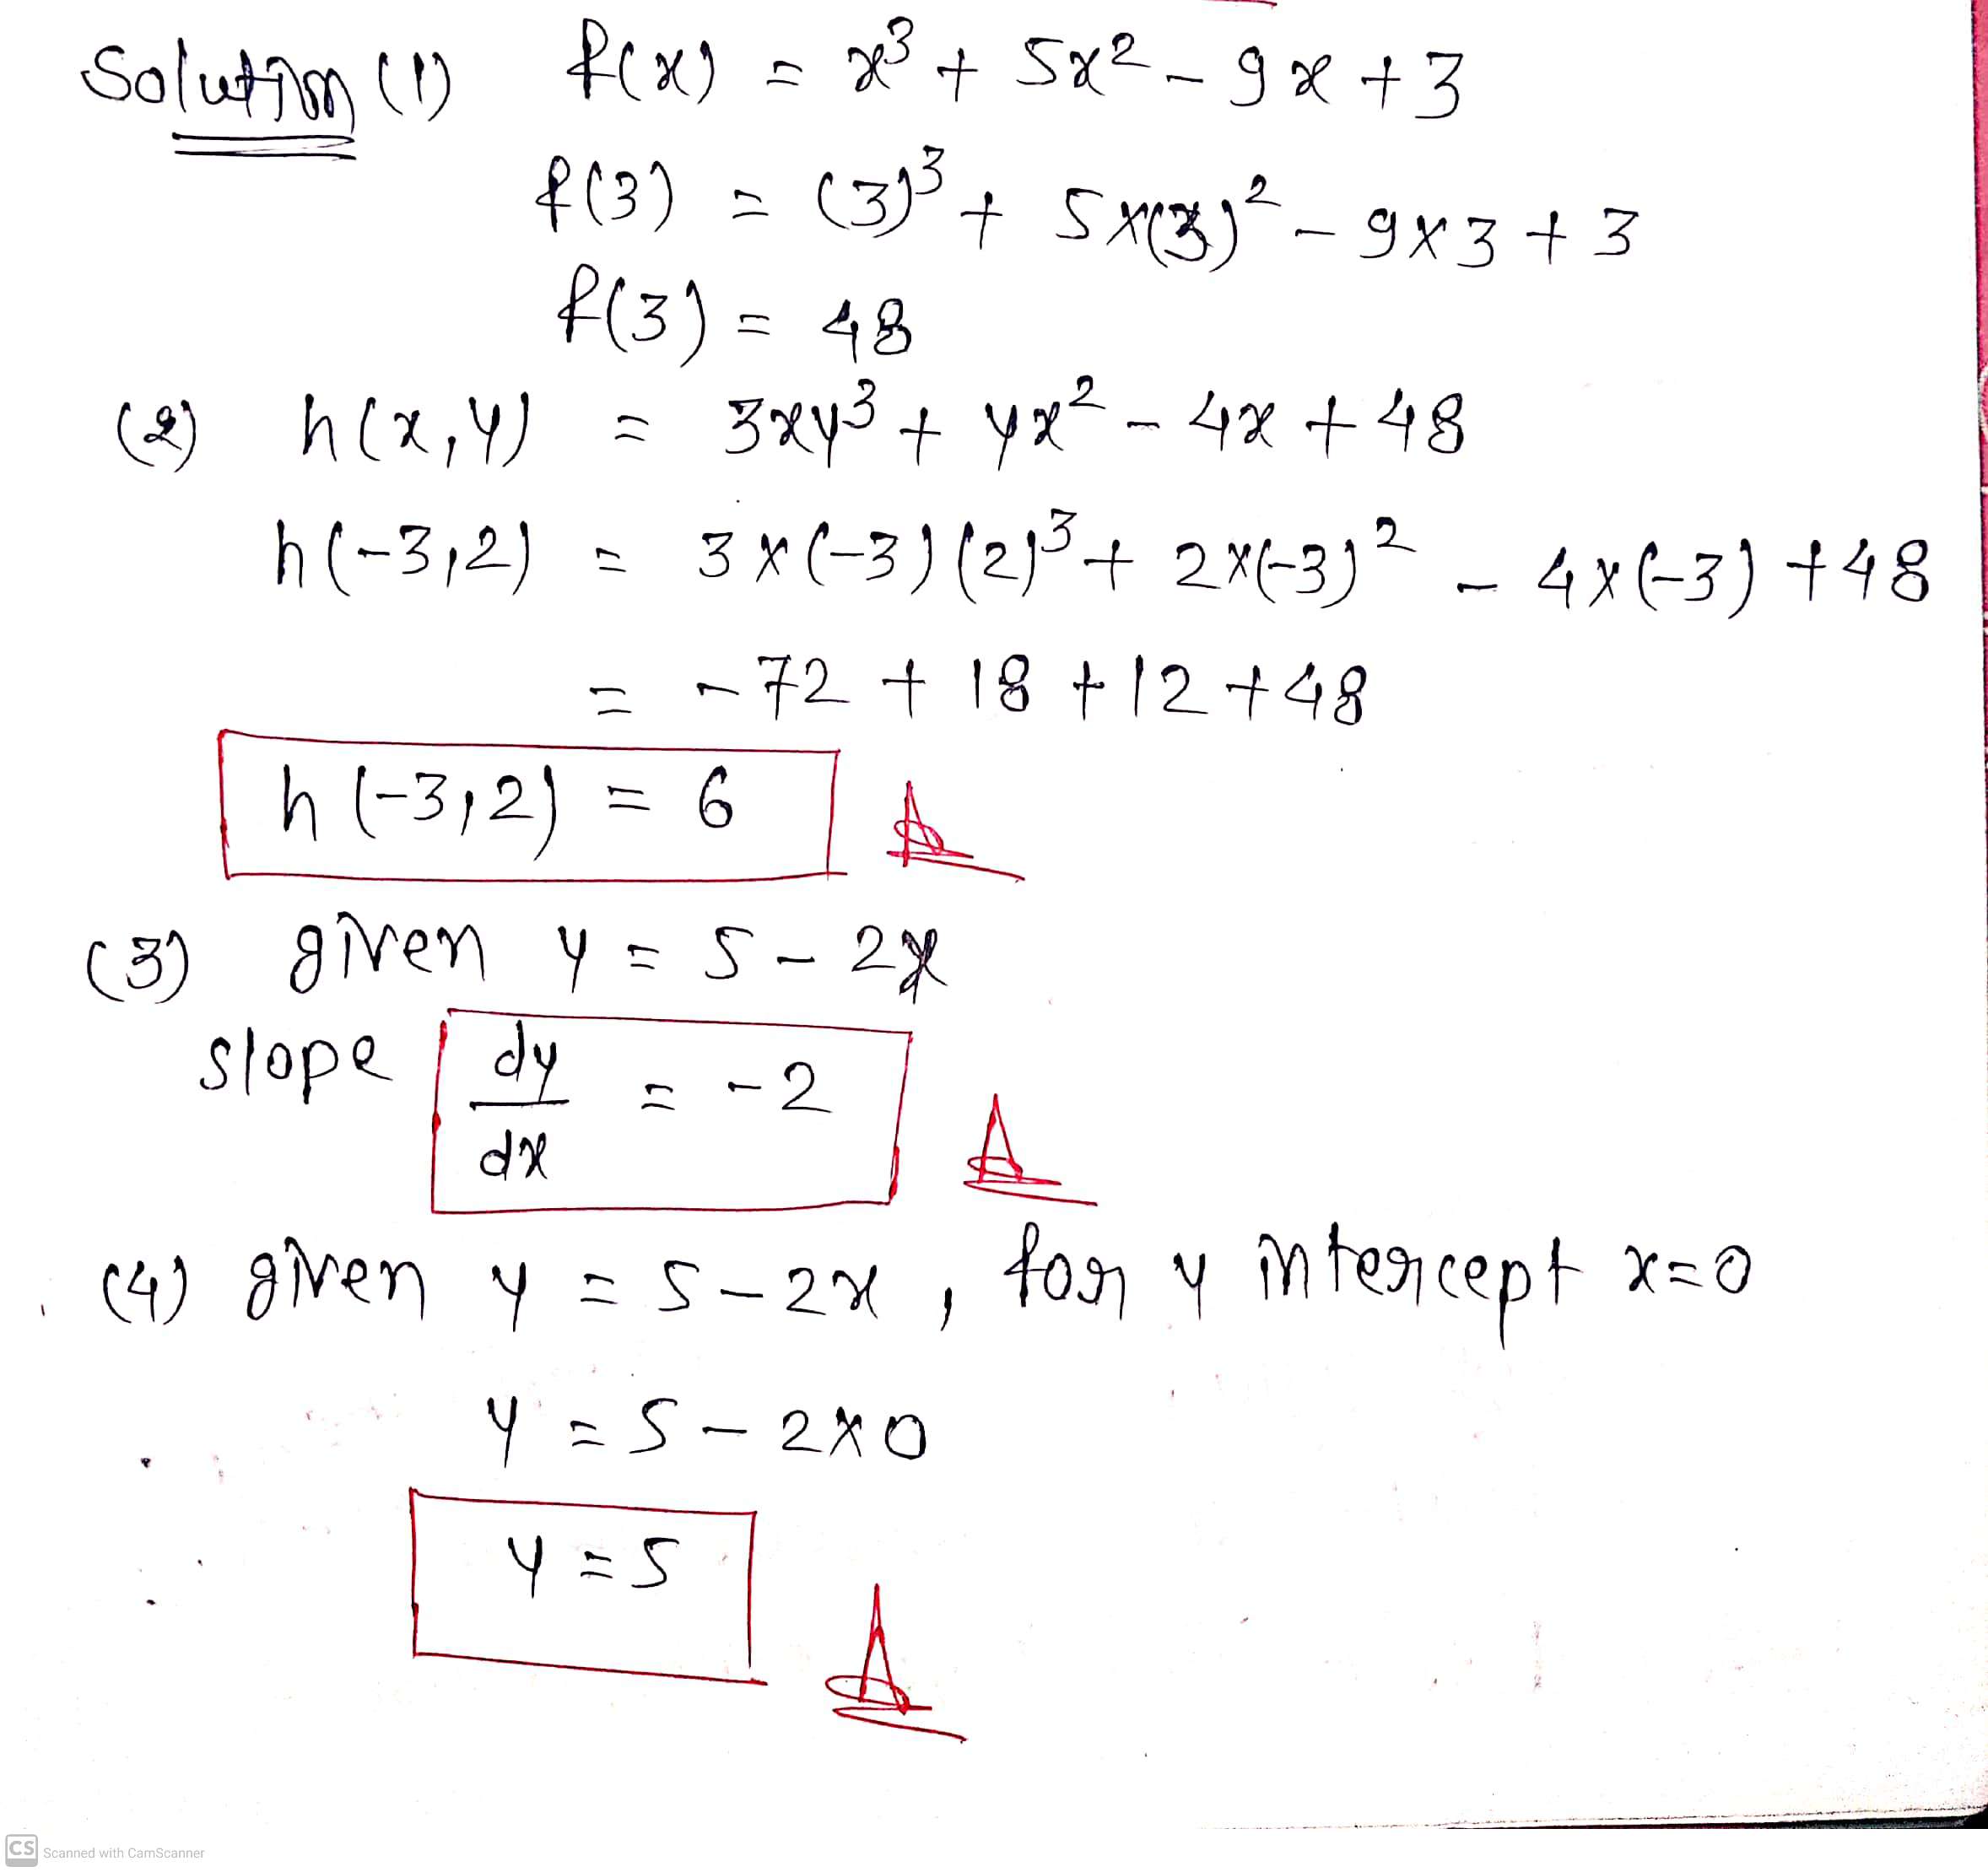 Solution (1) f(x) = x³ + 5x² - 9x + 3
f(3) = (3)³ + 5×(3)² - 9×3 + 3
f(3) = 48
(2) h(x,y) = 3xy³ + yx² - 4x + 48
h(-3,2) = 3×(-3)(2)³ + 2×(-3)² - 4×(-3) + 48
= -72 + 18 + 12 + 48
h(-3,2) = 6 A
(3) given y = 5 - 2x
slope dy/dx = -2 A
(4) given y = 5 - 2x , for y intercept x=0
y = 5 - 2×0
y = 5
A
CS Scanned with CamScanner